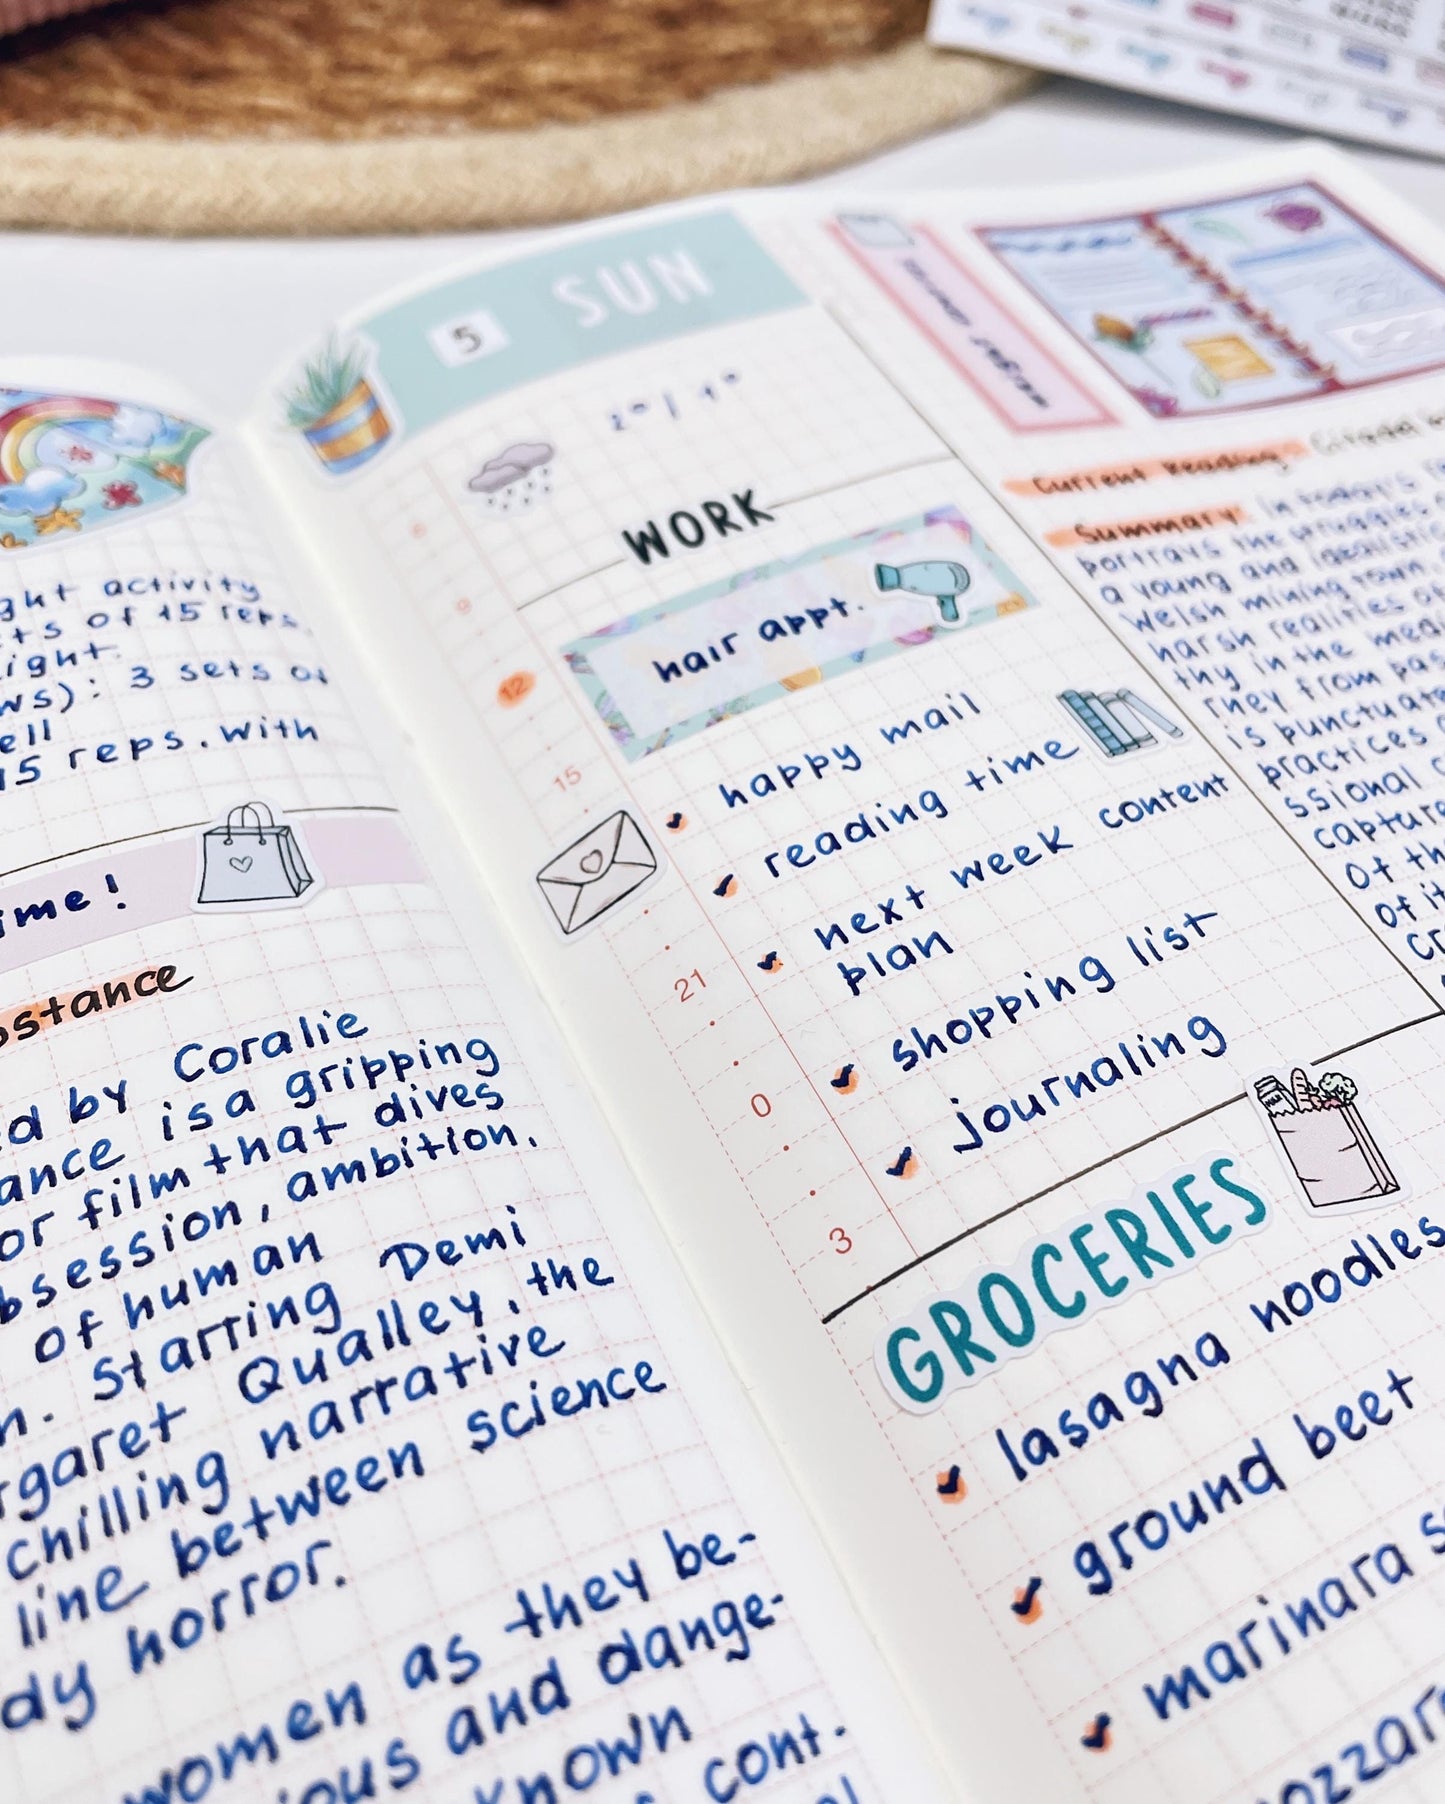 ght activity
ts of 15 reps.
ight.
ws): 3 sets of
ell
15 reps. with
ime!
ostance
ed by Coralie
ance is a gripping
or film that dives
bsession, ambition,
of human
n. Starring Demi
rgaret Qualley, the
chilling narrative
line between science
dy horror.
women as they be-
ious and dange-
known
cont.
5 SUN
WORK
hair appt.
12
15
21
0
3
happy mail
reading time
next week content
plan
shopping list
journaling
GROCERIES
lasagna noodles
ground beet
marinara s
ozzar
Current Reading: Citadel
Summary: In today's
portrays the struggles
a young and idealistic
Welsh mining town.
harsh realities
thy in the medi
rney from pas
is punctuate
practices
ssional
capture
of th
of it
cr